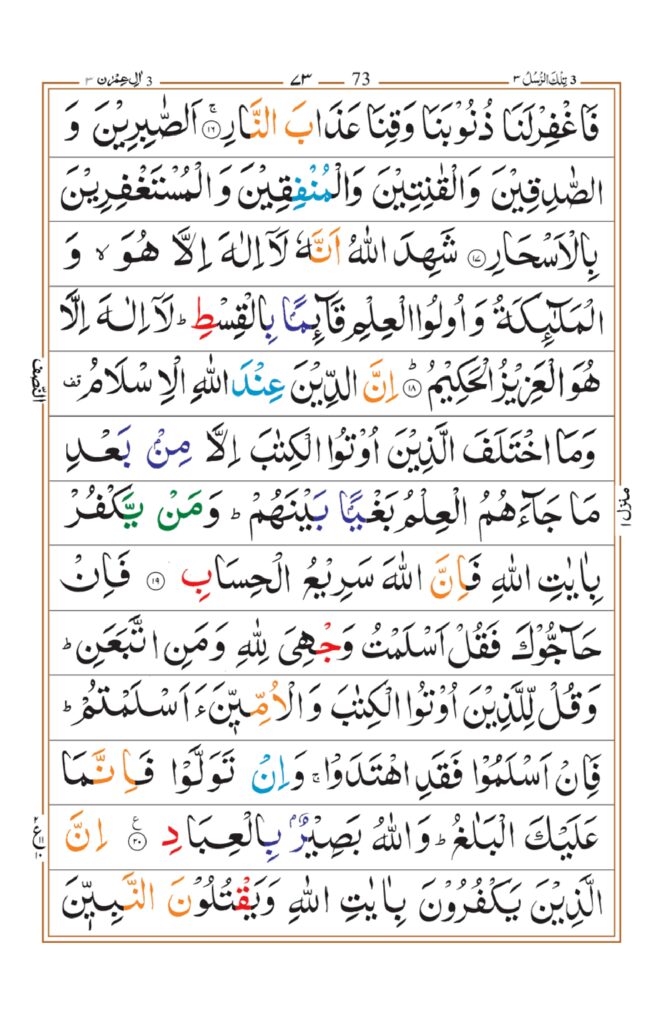 تِلْكَ الرُّسُلُ ٣ 3 73 ٧٣ اٰلِ عِمْرٰن ٣ 3
فَاغْفِرْلَنَا ذُنُوْبَنَا وَقِنَا عَذَابَ النَّارِ ۚ‏﴿۱۶﴾ اَلصّٰبِرِيْنَ وَ
الصّٰدِقِيْنَ وَالْقٰنِتِيْنَ وَالْمُنْفِقِيْنَ وَالْمُسْتَغْفِرِيْنَ
بِالْاَسْحَارِ ﴿۱۷﴾ شَهِدَ اللّٰهُ اَنَّهٗ لَاۤ اِلٰهَ اِلَّا هُوَ ۙ وَ
الْمَلٰٓئِكَةُ وَاُولُوا الْعِلْمِ قَآئِمًۢا بِالْقِسْطِ ؕ لَاۤ اِلٰهَ اِلَّا
هُوَ الْعَزِيْزُ الْحَكِيْمُ ؕ﴿۱۸﴾ اِنَّ الدِّيْنَ عِنْدَ اللّٰهِ الْاِسْلَامُ قف
النصف
وَمَا اخْتَلَفَ الَّذِيْنَ اُوْتُوا الْكِتٰبَ اِلَّا مِنْۢ بَعْدِ
مَا جَآءَهُمُ الْعِلْمُ بَغْيًۢا بَيْنَهُمْ ؕ وَمَنْ يَّكْفُرْ
منزل ۱
بِاٰيٰتِ اللّٰهِ فَاِنَّ اللّٰهَ سَرِيْعُ الْحِسَابِ ﴿۱۹﴾ فَاِنْ
حَآجُّوْكَ فَقُلْ اَسْلَمْتُ وَجْهِىَ لِلّٰهِ وَمَنِ اتَّبَعَنِ ؕ
وَقُلْ لِّلَّذِيْنَ اُوْتُوا الْكِتٰبَ وَالْاُمِّيّٖنَ ءَاَسْلَمْتُمْ ؕ
فَاِنْ اَسْلَمُوْا فَقَدِ اهْتَدَوْا ۚ وَاِنْ تَوَلَّوْا فَاِنَّمَا
عَلَيْكَ الْبَلٰغُ ؕ وَاللّٰهُ بَصِيْرٌۢ بِالْعِبَادِ ﴿۲۰﴾ اِنَّ
الَّذِيْنَ يَكْفُرُوْنَ بِاٰيٰتِ اللّٰهِ وَيَقْتُلُوْنَ النَّبِيّٖنَ